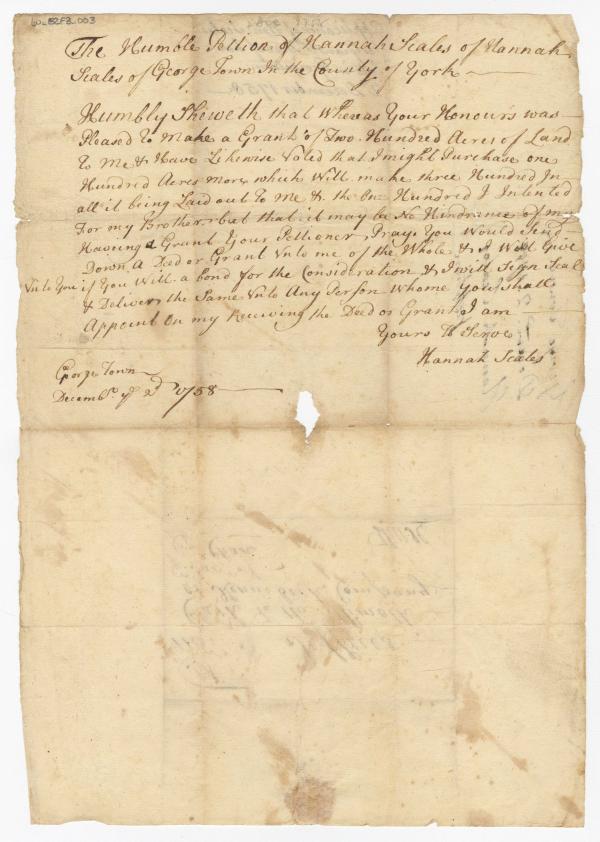 The Humble Pettion of Hannah Scales of Hannah
Scales of George Town In the County of York
Humbly Sheweth that Whereas Your Honours was
Pleased To Make a Grant of Two Hundred Acres of Land
To Me & Have Likewise Voted that I might Purchase one
Hundred Acres More which Will make three Hundred In
all it being Laid out To Me & the One Hundred I Intented
For my Brother but that it may be No Hindrance of my
Having a Grant Your Pettioner Prays You Would Send
Down A Deed or Grant Unto me of the Whole & I Will Give
Unto You if You Will a bond for the Consideration & I will Sign Seal
& Deliver the Same Unto Any Person Whome You Shall
Appoint On my Receiving the Deed or Grant I am
Yours To Serve
Hannah Scales
George Town
Decembr ye 2d 1758